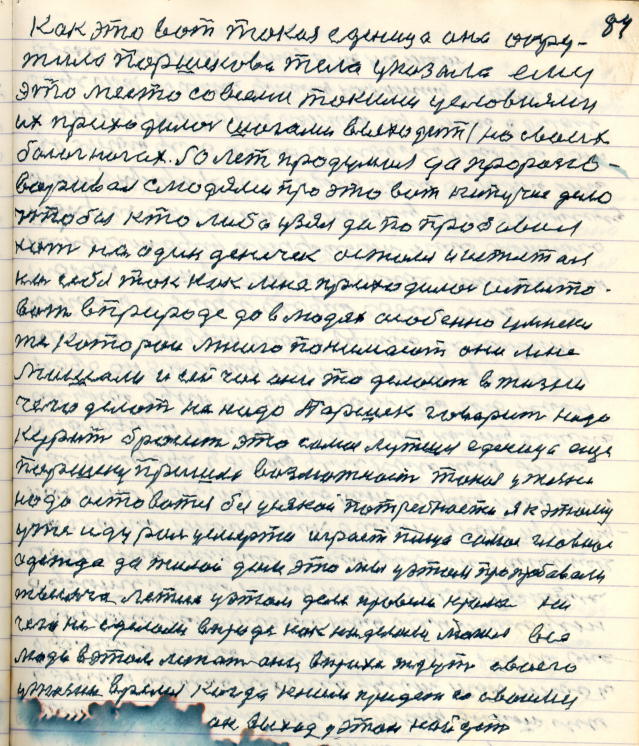 84
Как это вот такая еденица она окру-
жила Паршекова тела указала ему
это место совсеми такими условиями
их приходилос шагами выходит на своих
болных ногах. 50 лет продумал да проразго-
варивал слюдями про это вот кипучие дело
чтобы кто либа узял да попробавал
хот на один денёчек остался испытал
на себе так как мне приходилос испыто-
ват вприроде да влюдях особенно умнеки
же каторои много понимают они мне
мишали и сейчас они это делают вжизни
чего делат не надо Паршек говарит надо
курит бросит это сама лутшия еденица еще
Паршеку пришла возможност такая ужизни
надо оставатся без усякой потребности я кэтаму
уже иду рол усмерти играет пища самое главное
одежда да жилой дом это мы уэтом пропробавали
тысяча летия уэтом деле провели никто ни
чего не сделали вприроде как не делали
люди вэтом они ждут своего
ужизни время Когда кним придет со своими
он выход уэтом найдет